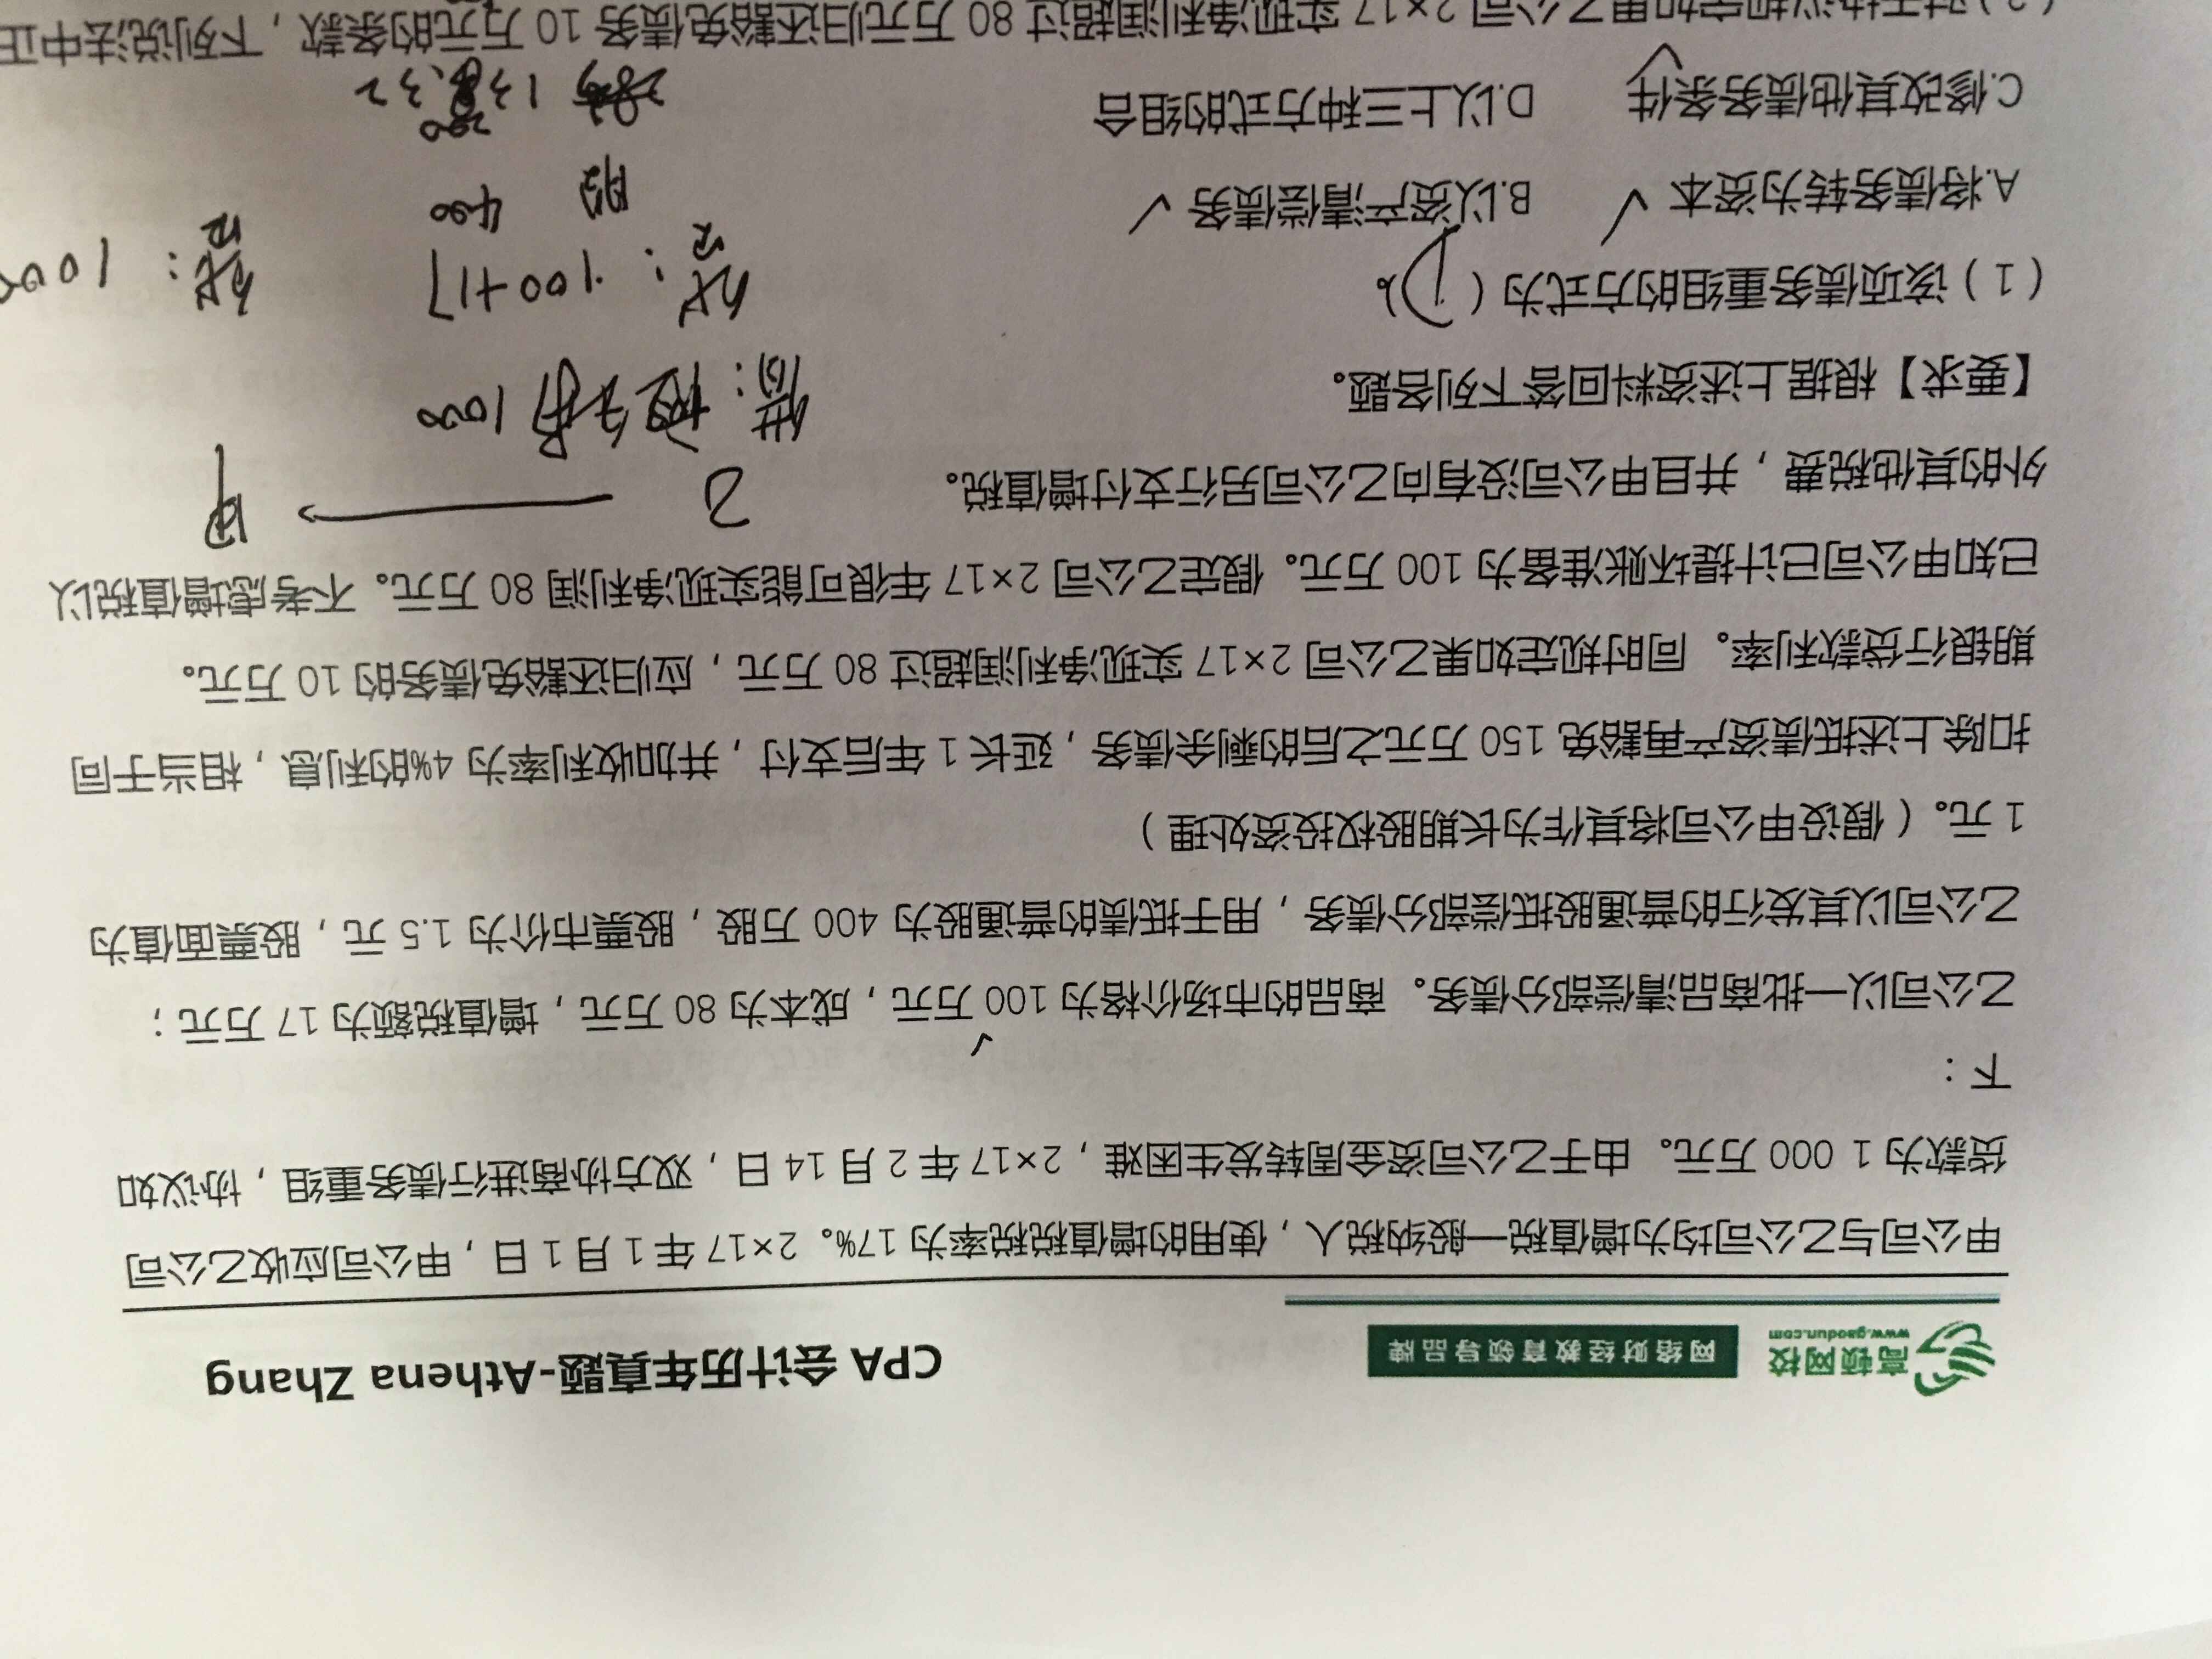 高顿网校
www.gaodun.com
网络财经教育领导品牌
CPA 会计历年真题-Athena Zhang
甲公司与乙公司均为增值税一般纳税人，使用的增值税税率为 17%。2×17 年 1 月 1 日，甲公司应收乙公司
货款为 1 000 万元。由于乙公司资金周转发生困难，2×17 年 2 月 14 日，双方协商进行债务重组，协议如
下：
乙公司以一批商品清偿部分债务。商品的市场价格为 100 万元，成本为 80 万元，增值税额为 17 万元；
乙公司以其发行的普通股抵偿部分债务，用于抵债的普通股为 400 万股，股票市价为 1.5 元，股票面值为
1 元。（假设甲公司将其作为长期股权投资处理）
扣除上述抵债资产再豁免 150 万元之后的剩余债务，延长 1 年后支付，并加收利率为 4%的利息，相当于同
期银行贷款利率。同时规定如果乙公司 2×17 实现净利润超过 80 万元，应归还豁免债务的 10 万元。
已知甲公司已计提坏账准备为 100 万元。假定乙公司 2×17 年很可能实现净利润 80 万元。不考虑增值税以
外的其他税费，并且甲公司没有向乙公司另行支付增值税。
乙 → 甲
【要求】根据上述资料回答下列各题。
借： 1000
（1）该项债务重组的方式为（ D ）。
贷：100+17
贷：100
A.将债务转为资本 ✓ B.以资产清偿债务 ✓
股 400
200
C.修改其他债务条件 D.以上三种方式的组合
（2）对于协议规定如果乙公司 2×17 实现净利润超过 80 万元归还豁免债务 10 万元的条款，下列说法中正